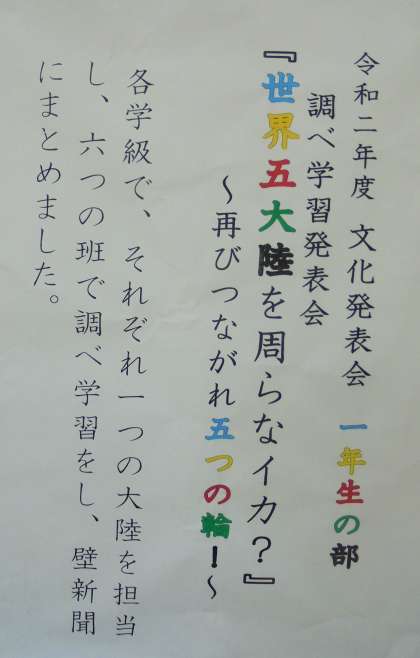 令和二年度　文化発表会　一年生の部
調べ学習発表会
『世界五大陸を周らなイカ？』
～再びつながれ五つの輪！～
各学級で、それぞれ一つの大陸を担当
し、六つの班で調べ学習をし、壁新聞
にまとめました。